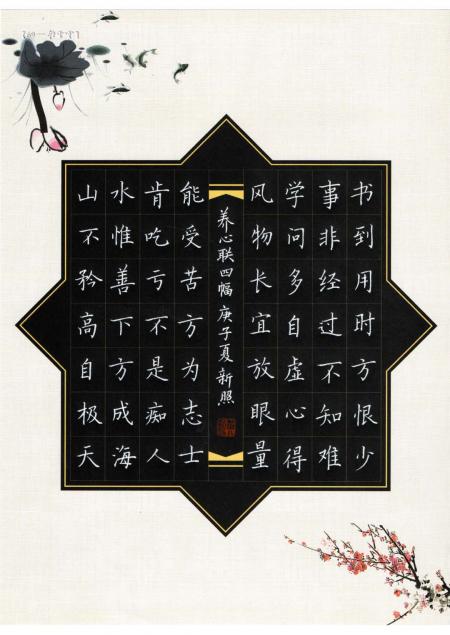 书到用时方恨少
事非经过不知难
学问多自虚心得
风物长宜放眼量
养心联四幅 庚子夏 新照
能受苦方为志士
肯吃亏不是痴人
水惟善下方成海
山不矜高自极天